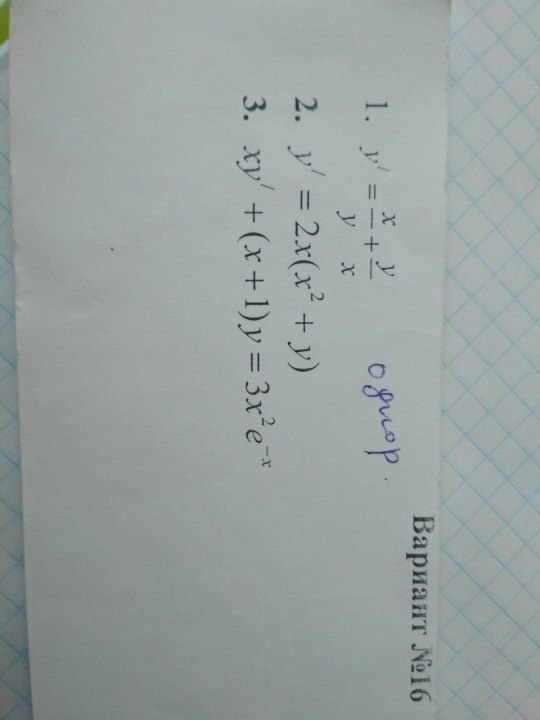 Вариант №16
1. y' = x/y + y/x однор.
2. y' = 2x(x² + y)
3. xy' + (x + 1)y = 3x²e⁻ˣ